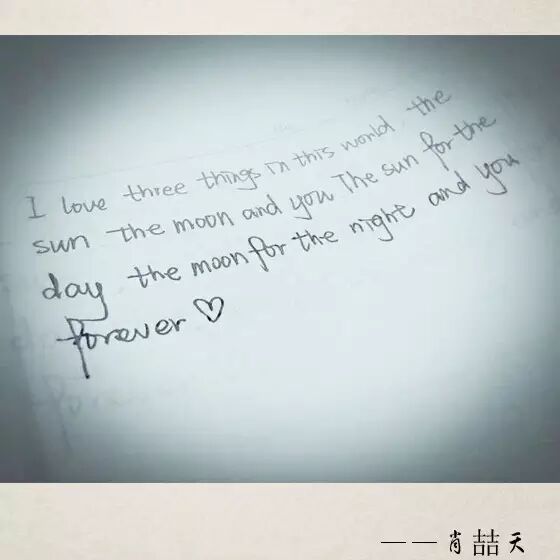 I love three things in this world the
sun the moon and you The sun for the
day the moon for the night and you
forever♡
——肖喆天